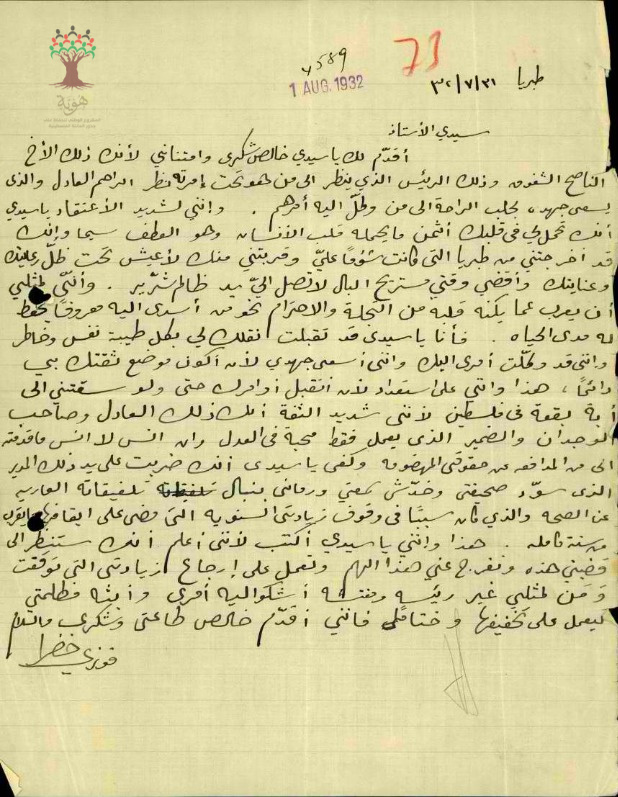 هوية
4589
73
1 AUG. 1932
طبريا ٣٢/٧/٣١
سيدي الأستاذ
أقدّم لك يا سيدي خالص شكري وامتناني لأنك ذلك الأخ
الناصح الشفوق وذلك الرئيس الذي ينظر الى من هو تحت إمرته نظر الراحم العادل والذى
يسعى جهده بجلب الراحة الى من وكل اليه أمرهم . وانني لشديد الأعتقاد يا سيدي
أنك تحمل لي في قلبك أثمن ما يحمله قلب الأنسان وهو العطف سيما وإنك
قد أخرجتني من طبريا التى كانت شؤمًا عليّ وقربتني منك لأعيش تحت ظلّ
وعنايتك وأقضي وقتي مستريح البال لا تصل اليّ يد ظالم شرّير . وأنّى لمثلي
أن يعرب عما يكنّه قلبه من التجلة والاحترام نحو من أسدى اليه معروفًا يحفظ
له مدى الحياه . فأنا يا سيدي قد تقبلت نقلك لي بكل طيبة نفس وخاطر
وانني قد وكلت أمرى اليك وانني أسعى جهدي لأن أكون موضع ثقتك بي
دائمًا، هذا وانني على استعداد لأن أتقبل أوامرك حتى ولو سقتني الى
أية بقعة في فلسطين لأنني شديد الثقة أنك ذلك العادل وصاحب
الوجدان والضمير الذى يعمل فقط محبة في العدل وان انس لا انس ما قدمته
الى من المدافعه عن حقوقي المهضومه وكفى يا سيدى أنك ضربت على يد ذلك المدير
الذى سوّد صحيفتي وخدّش سمعتي ورماني بنبال تلفيقاته العاريه
عن الصحه والذي كان سببًا في وقوف زيادتى السنويه التى مضى على ايقافها
من سنة كامله . هذا وإنني يا سيدي أكتب لأنني أعلم أنك ستنظر الى
قضيتي هذه وتفرج عني هذا الهم وتعمل على إرجاع زيادتى التى توقفت
وَمَن لمثلي غير رئيسه ومفتشه أشكو اليه أمري وأبثه ظلامتي
ليعمل على تخفيفها وختامًا فانني أقدّم خالص طاعتي وشكري والسلام
فوزي خضرا